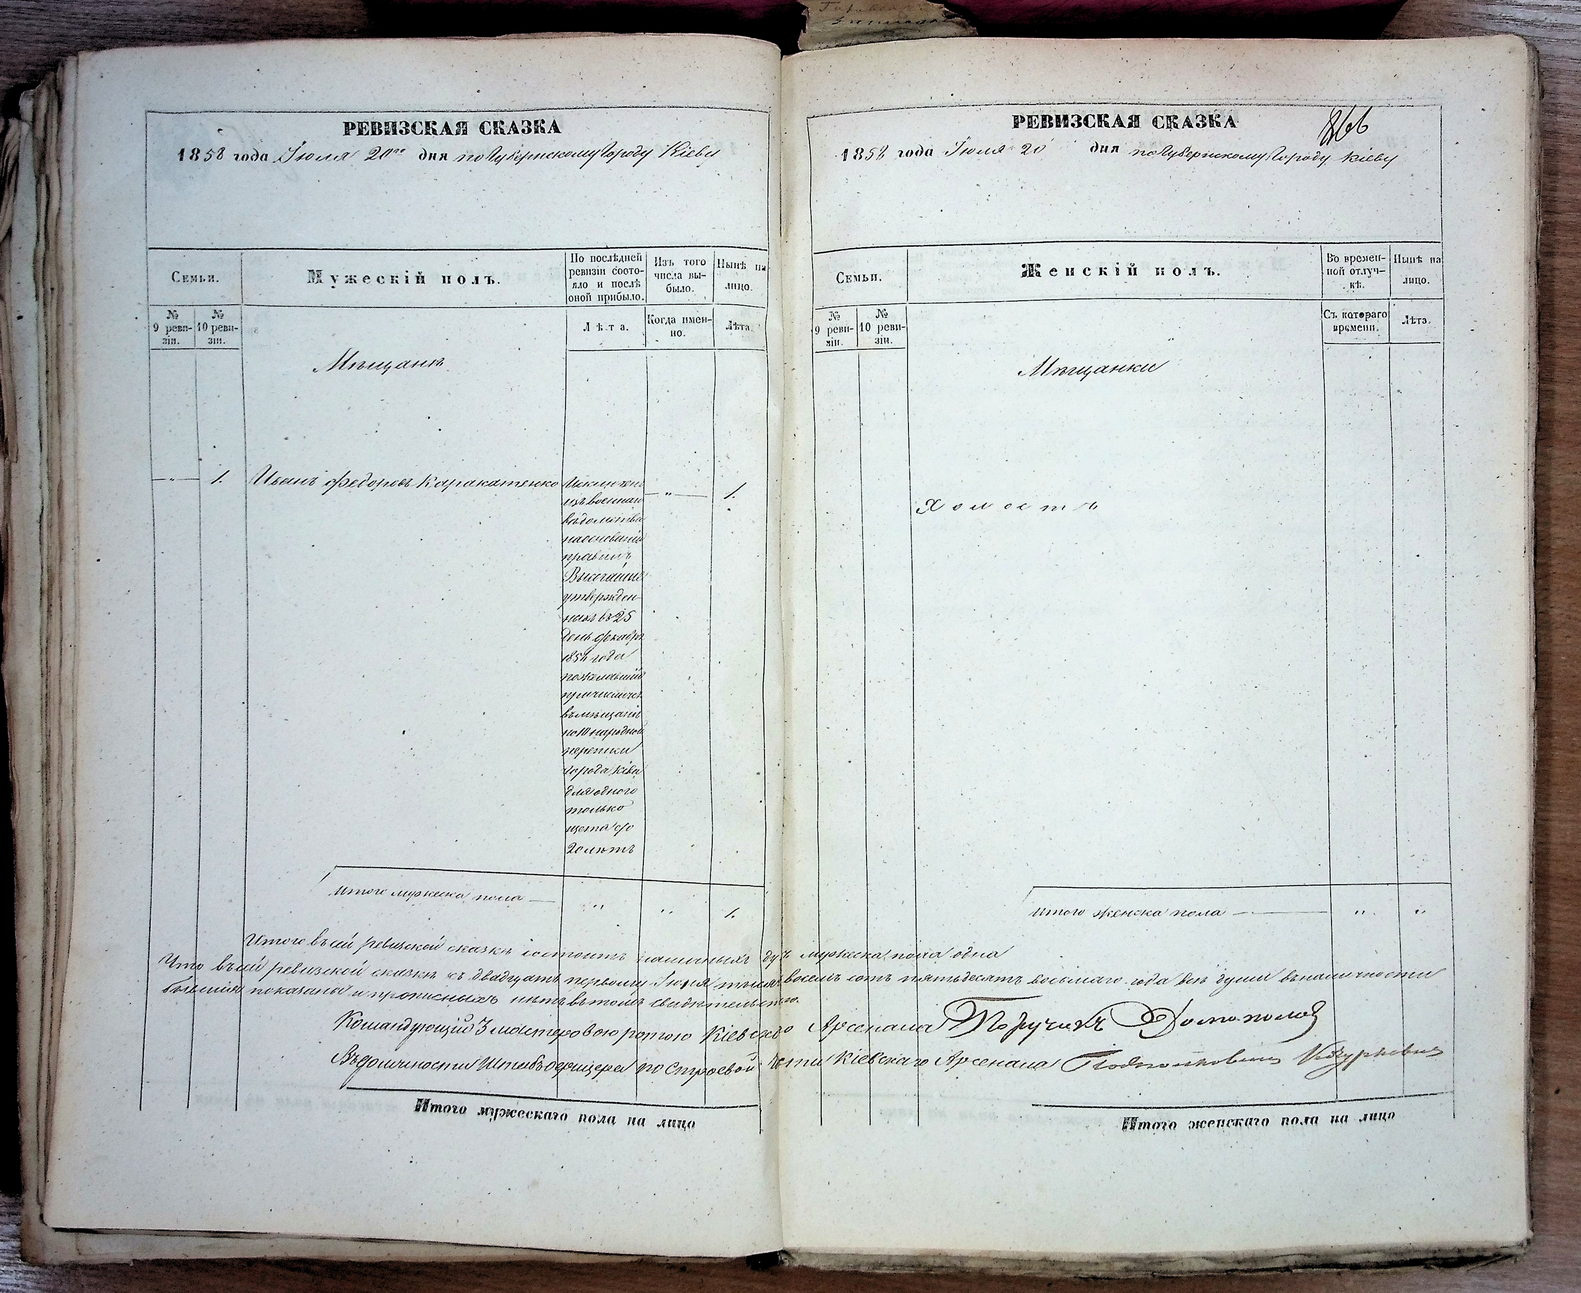 РЕВИЗСКАЯ СКАЗКА
1858 года Іюля 20го дня по Губернскому Городу Кіеву
Семьи.
Мужескій полъ.
По послѣдней ревизіи состояло и послѣ оной прибыло.
Изъ того числа выбыло.
Нынѣ на лицо.
№ 9 ревизіи.
№ 10 ревизіи.
Лѣта.
Когда именно.
Лѣта.
Мѣщане
— „ —
1.
Иванъ Федоровъ Каракатенко
изъ военнаго
вѣдомства
на основаніи
правилъ
Высочайше
утвержден-
ныхъ въ 25
день Декабря
185 года
пожелавшій
въ мѣщане
по 10 народной
переписи
города Кіева
для одного
только
счета
20 лѣтъ
— „ —
1.
Итого мужеска пола —
„
„
1.
РЕВИЗСКАЯ СКАЗКА
866
1858 года Іюля 20 дня по Губернскому Городу Кіеву
Семьи.
Женскій полъ.
Во временной отлучкѣ.
Нынѣ на лицо.
№ 9 ревизіи.
№ 10 ревизіи.
Съ котораго времени.
Лѣта.
Мѣщанки
Холостъ
Итого женска пола —
„
„
Итого въ сей ревизской сказкѣ состоитъ наличныхъ душъ мужеска пола одна
Что въ сей ревизской сказкѣ съ двадцать перваго Іюня тысяча восемь сотъ пятьдесятъ восьмаго года всѣ души въ наличности
показаны и прописныхъ нѣтъ въ томъ свидѣтельствую.
Командующій 3 мастеровою ротою Кіевскаго Арсенала Поручикъ
Въ должности Штабъ офицера по Строевой части Кіевскаго Арсенала Подполковникъ
Итого мужескаго пола на лицо
Итого женскаго пола на лицо